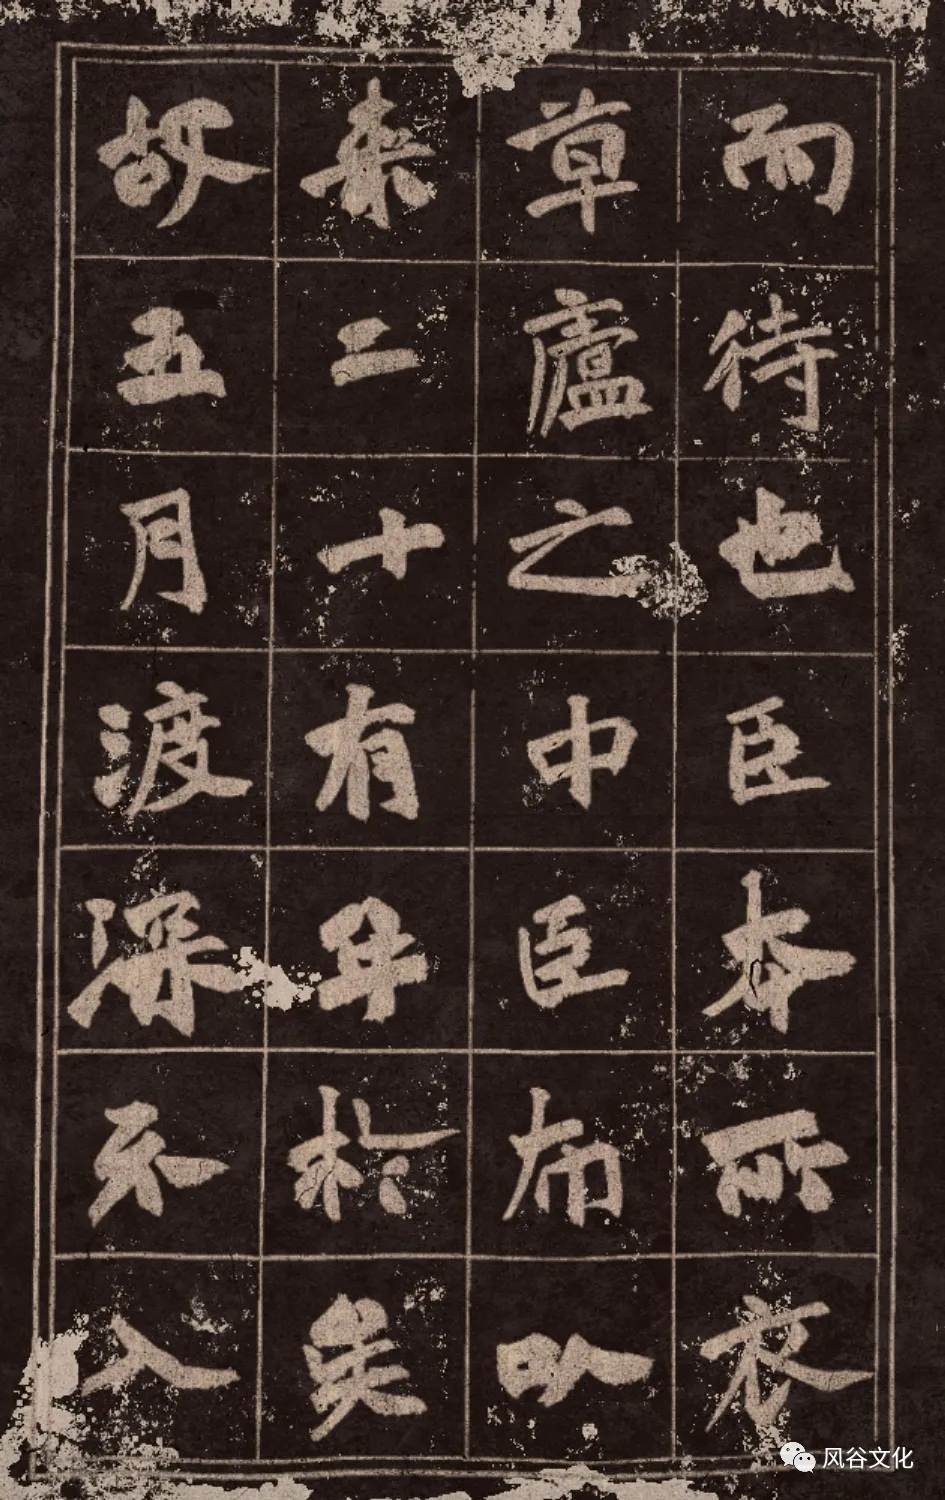 而待也臣本所衣
草廬之中臣布以
来二十有年於矣
故五月渡深不入
风谷文化